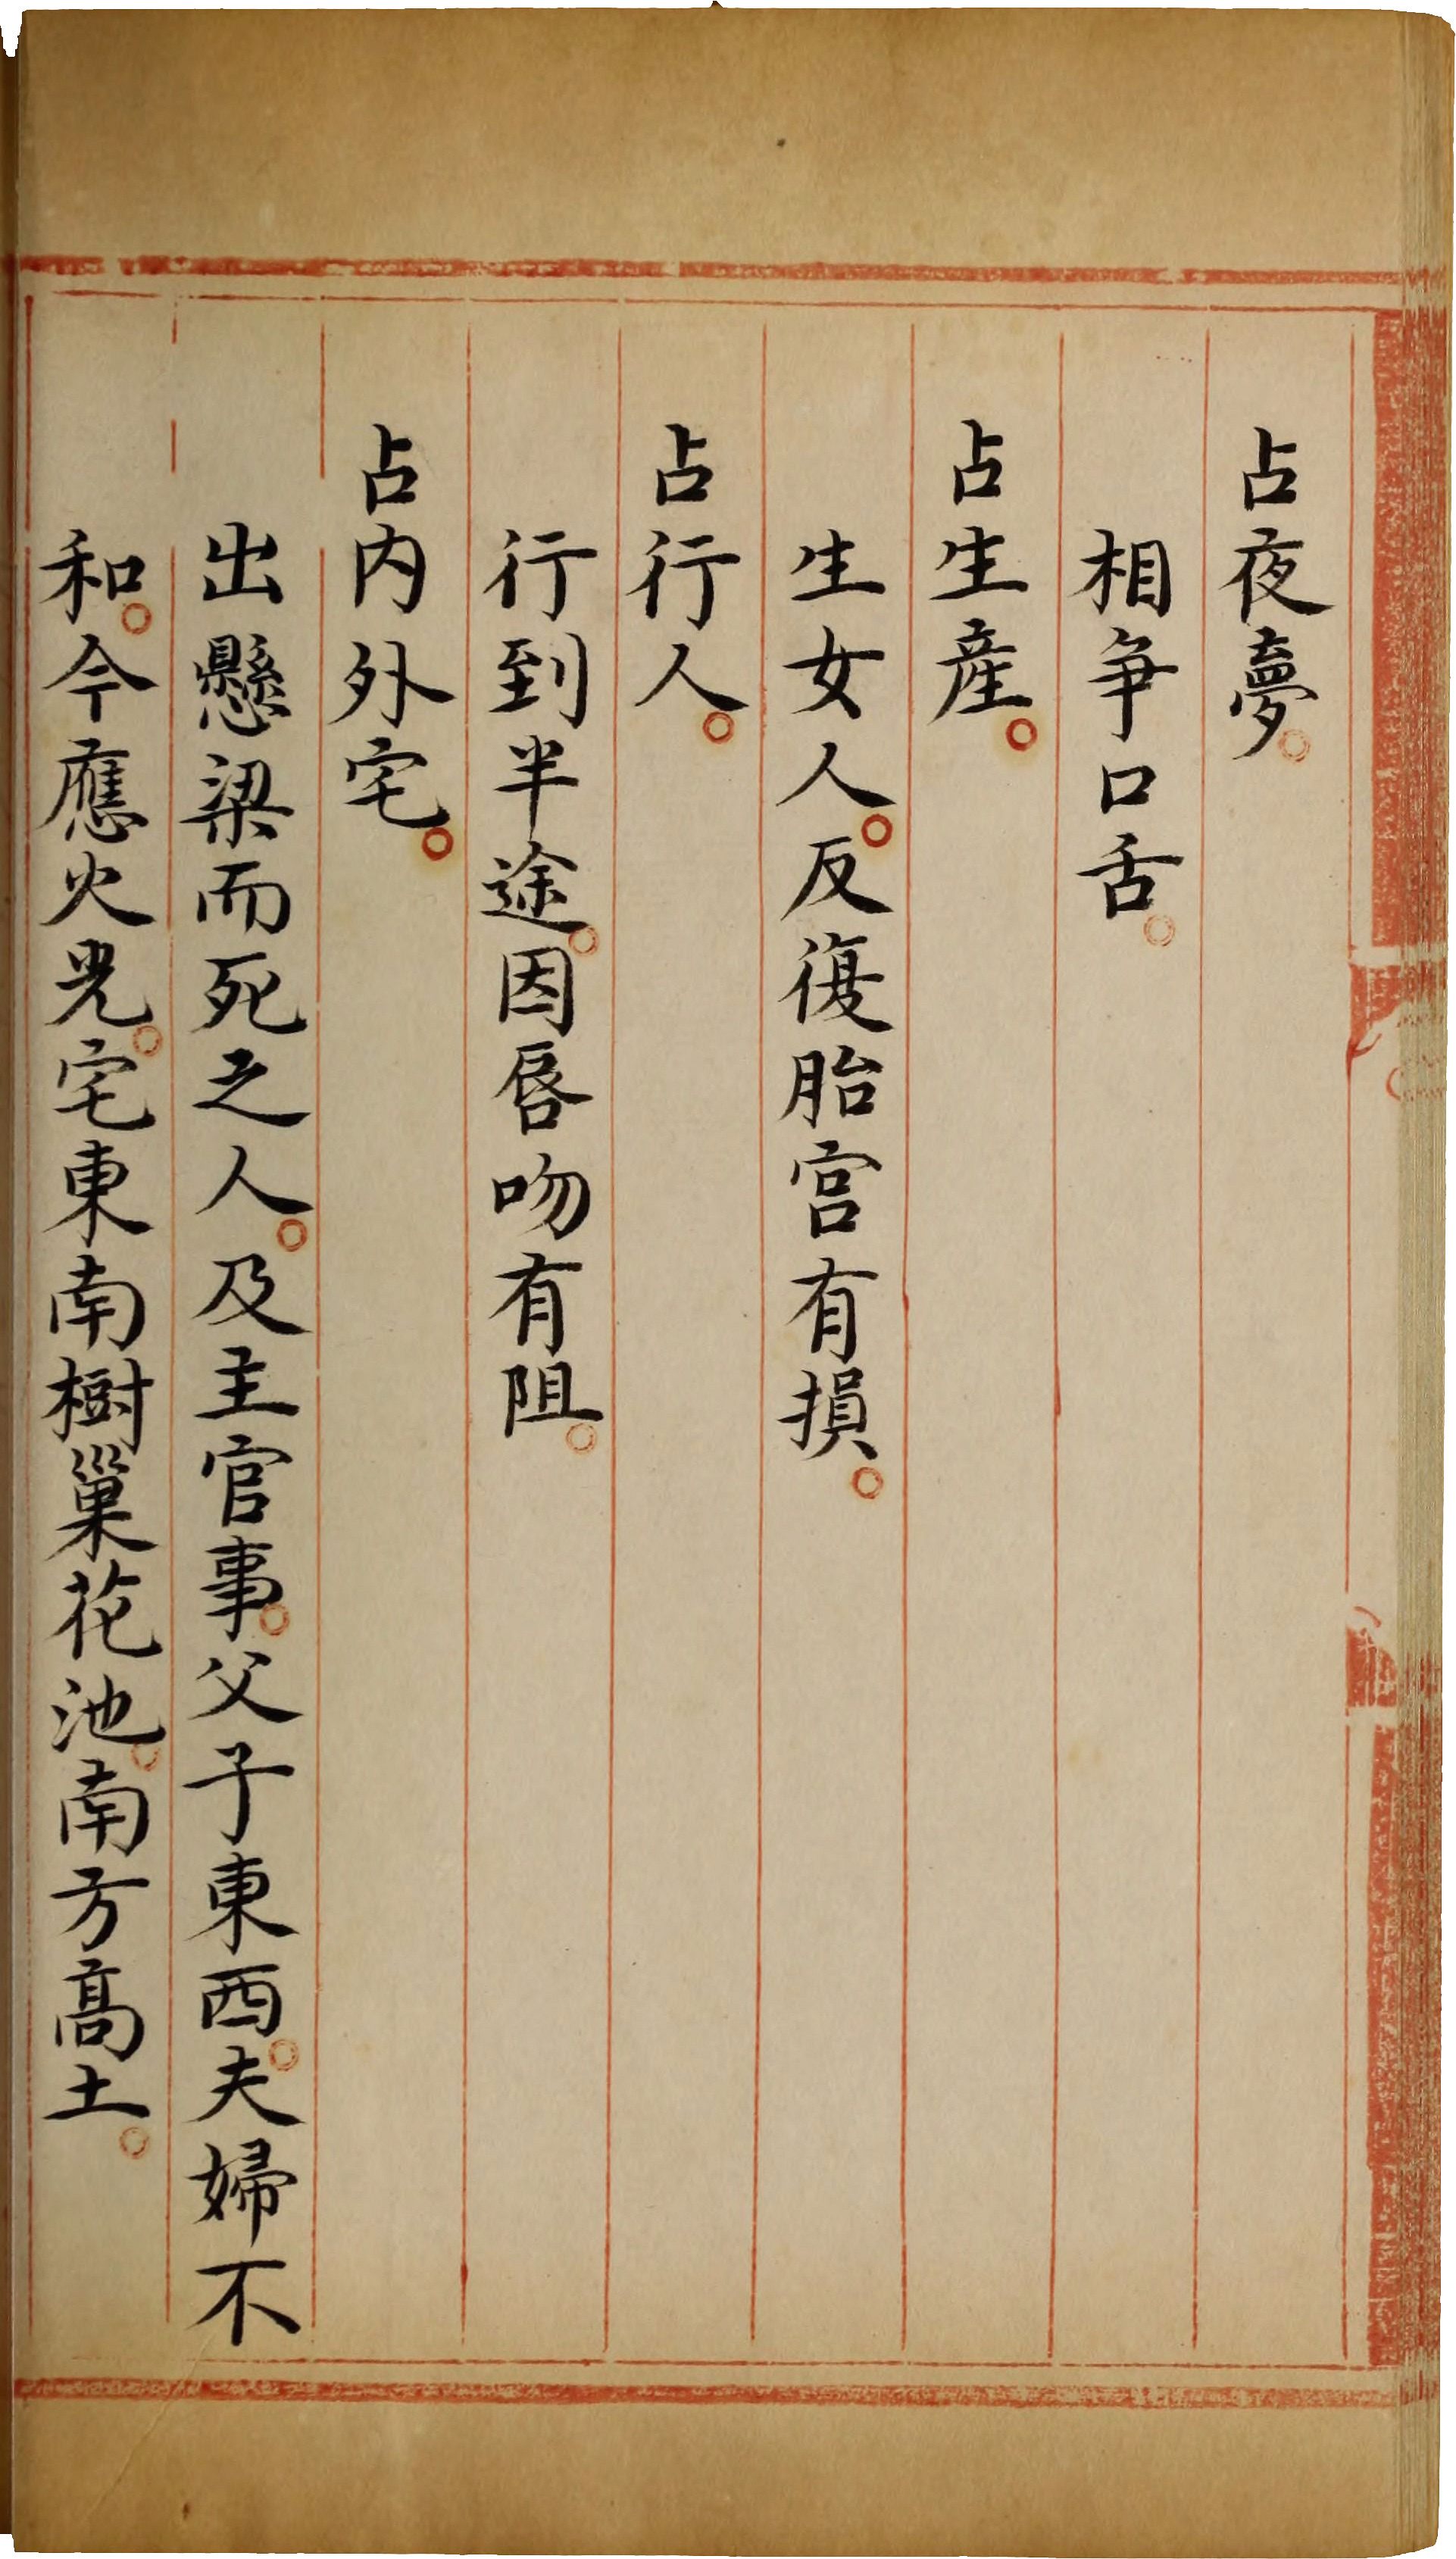 占夜夢。
相争口舌。
占生産。
生女人。反復胎宫有損。
占行人。
行到半途。因唇吻有阻。
占内外宅。
出懸梁而死之人。及主官事。父子東西。夫婦不
和。今應火光。宅東南樹巢花池。南方高土。